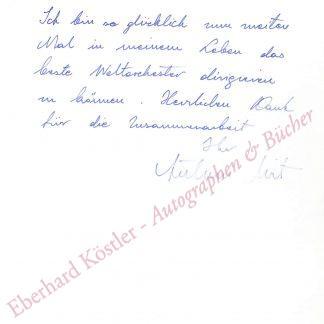 Ich bin so glücklich zum zweiten
Mal in meinem Leben das
beste Weltorchester dirigieren
zu können. Herzlichen Dank
für die Zusammenarbeit
Ihr
Eberhard Köstler - Autographen & Bücher